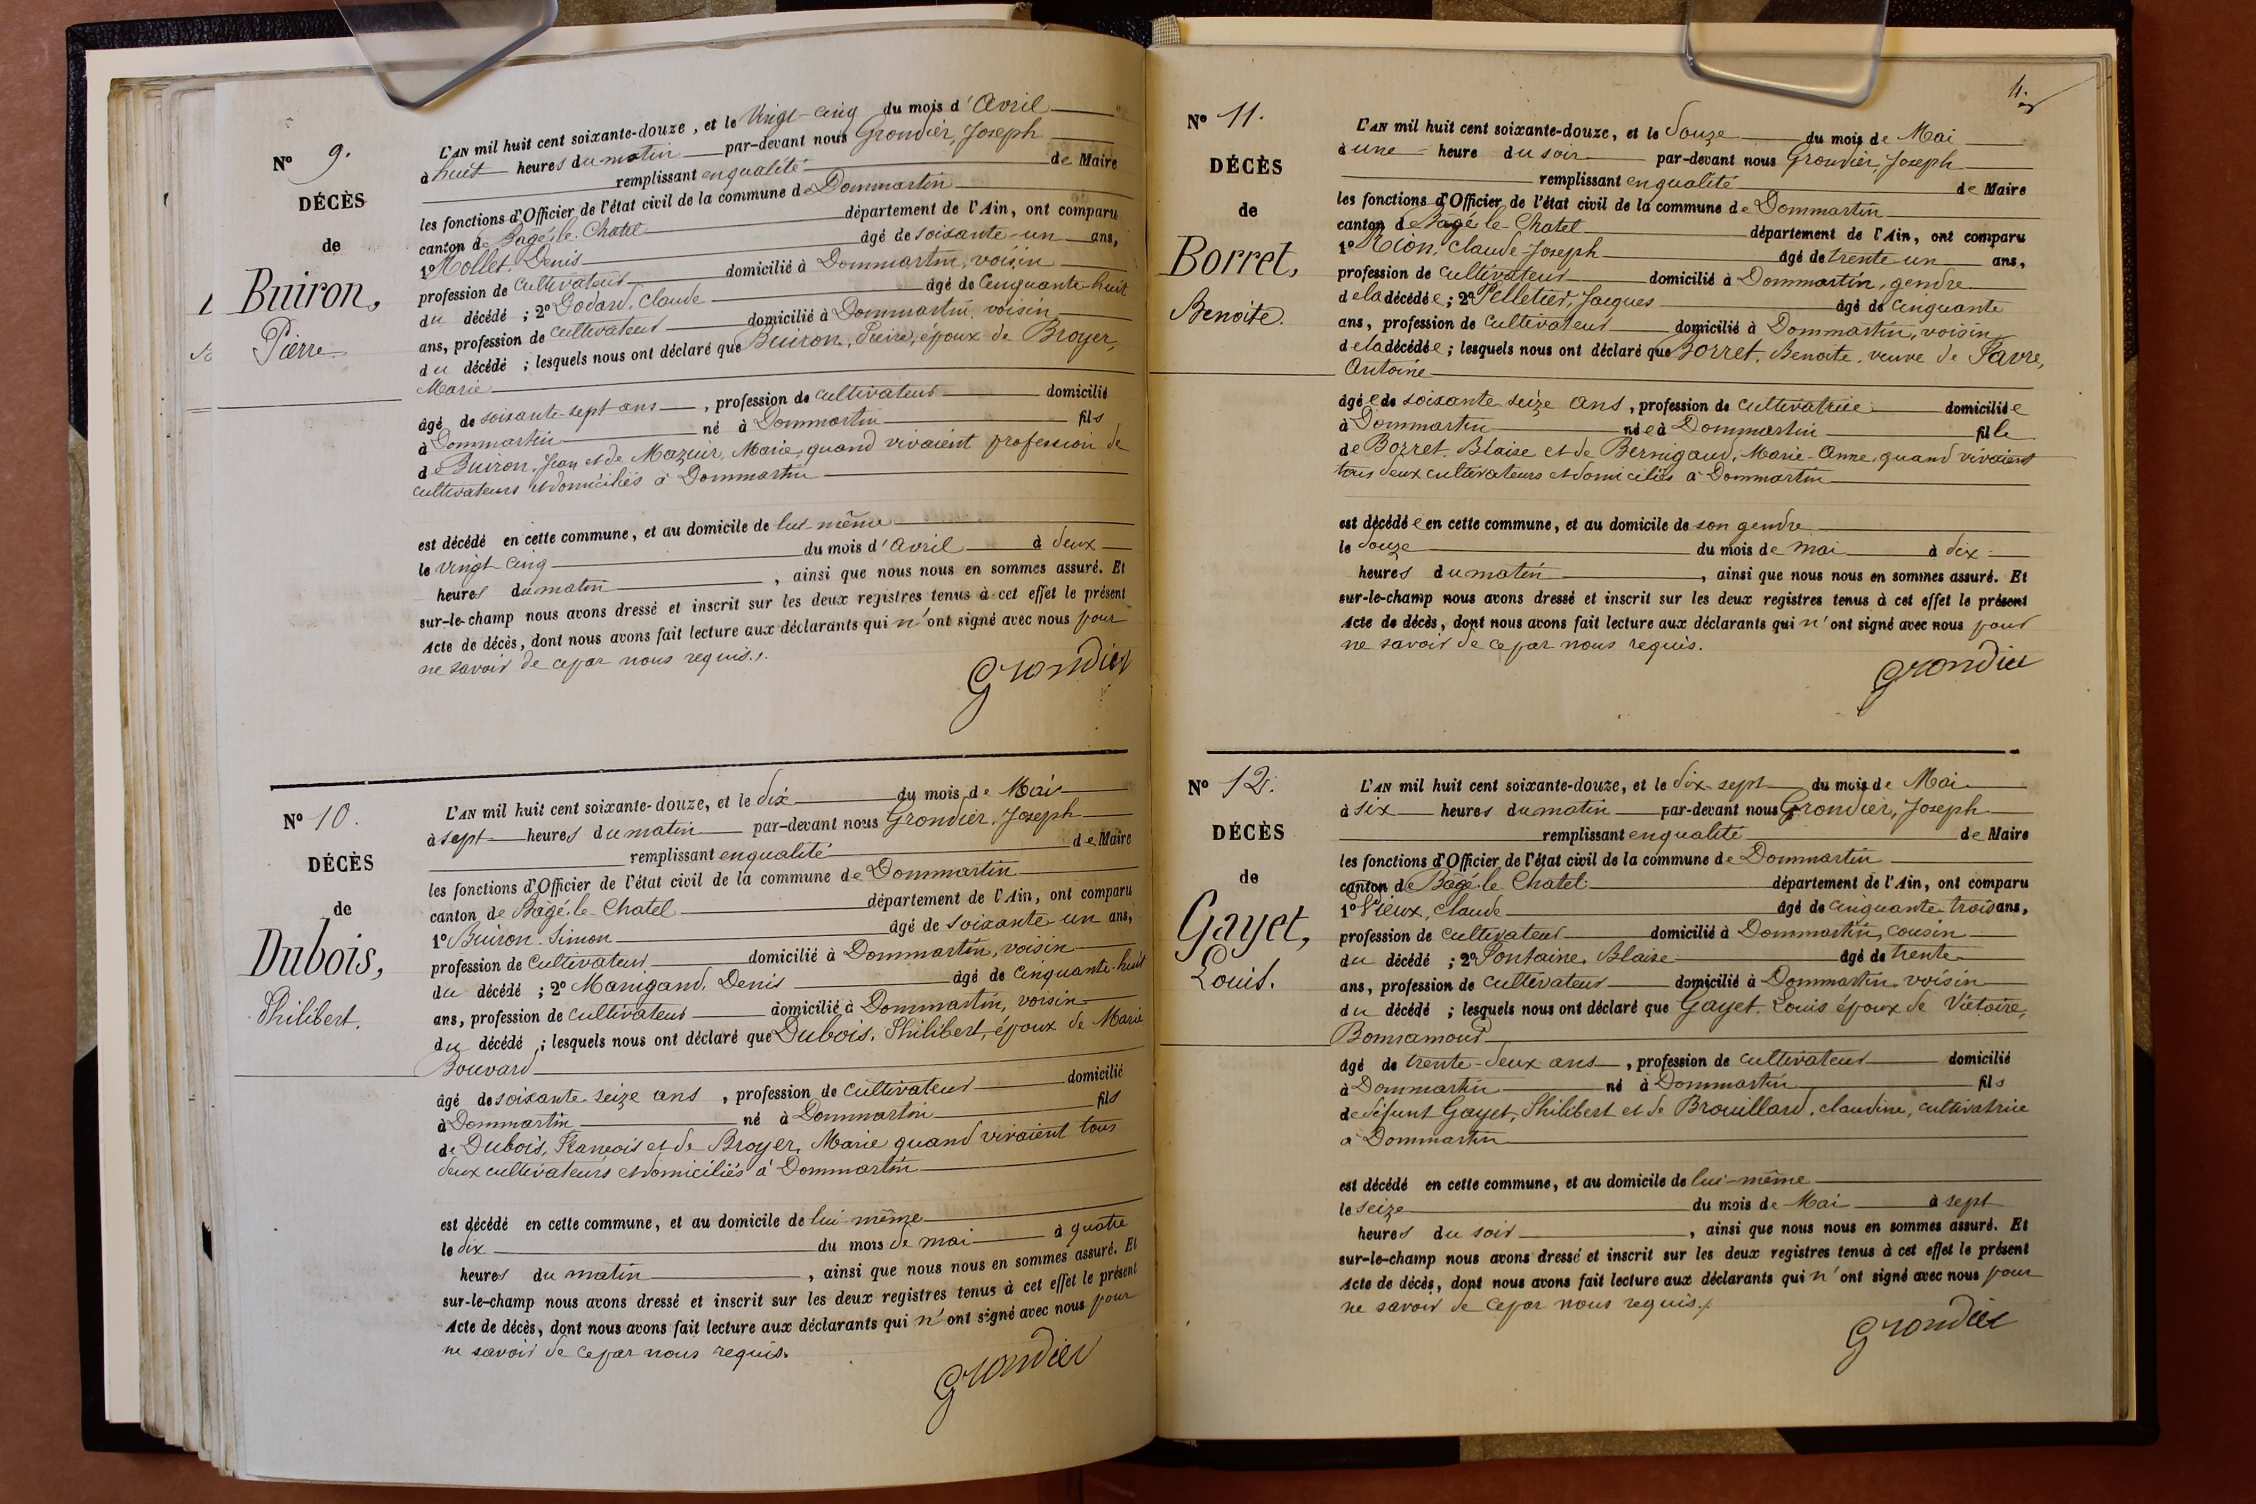 N° 9.
DÉCÈS
de
Buiron,
Pierre
L'AN mil huit cent soixante-douze, et le Vingt-cinq du mois d'Avril
à huit heures du matin par-devant nous Grondier, Joseph
remplissant en qualité de Maire
les fonctions d'Officier de l'état civil de la commune de Dommartin
canton de Bâgé-le-Chatel département de l'Ain, ont comparu
1° Mollet, Denis âgé de soixante-un ans,
profession de cultivateur domicilié à Dommartin, voisin
du décédé ; 2° Godard, Claude âgé de Cinquante-huit
ans, profession de cultivateur domicilié à Dommartin, voisin
du décédé ; lesquels nous ont déclaré que Buiron, Pierre, époux de Broyer,
Marie
âgé de soixante-sept ans, profession de cultivateur domicilié
à Dommartin né à Dommartin fils
de Buiron, Jean et de Mazuir, Marie, quand vivaient profession de
cultivateurs et domiciliés à Dommartin
est décédé en cette commune, et au domicile de lui-même
le vingt-cinq du mois d'Avril à deux
heures du matin, ainsi que nous nous en sommes assuré. Et
sur-le-champ nous avons dressé et inscrit sur les deux registres tenus à cet effet le présent
Acte de décès, dont nous avons fait lecture aux déclarants qui n'ont signé avec nous pour
ne savoir de ce par nous requis.
Grondier
N° 10.
DÉCÈS
de
Dubois,
Philibert.
L'AN mil huit cent soixante-douze, et le dix du mois de Mai
à sept heures du matin par-devant nous Grondier, Joseph
remplissant en qualité de Maire
les fonctions d'Officier de l'état civil de la commune de Dommartin
canton de Bâgé-le-Chatel département de l'Ain, ont comparu
1° Buiron, Simon âgé de soixante-un ans,
profession de cultivateur domicilié à Dommartin, voisin
du décédé ; 2° Manigand, Denis âgé de cinquante-huit
ans, profession de cultivateur domicilié à Dommartin, voisin
du décédé ; lesquels nous ont déclaré que Dubois, Philibert, époux de Marie
Bouvard
âgé de soixante-seize ans, profession de cultivateur domicilié
à Dommartin né à Dommartin fils
de Dubois, François et de Broyer, Marie quand vivaient tous
deux cultivateurs et domiciliés à Dommartin
est décédé en cette commune, et au domicile de lui-même
le dix du mois de mai à quatre
heures du matin, ainsi que nous nous en sommes assuré. Et
sur-le-champ nous avons dressé et inscrit sur les deux registres tenus à cet effet le présent
Acte de décès, dont nous avons fait lecture aux déclarants qui n'ont signé avec nous pour
ne savoir de ce par nous requis.
Grondier
11.
N° 11.
DÉCÈS
de
Borret,
Benoite.
L'AN mil huit cent soixante-douze, et le douze du mois de Mai
à une heure du soir par-devant nous Grondier, Joseph
remplissant en qualité de Maire
les fonctions d'Officier de l'état civil de la commune de Dommartin
canton de Bâgé-le-Chatel département de l'Ain, ont comparu
1° Rion, Claude-Joseph âgé de trente-un ans,
profession de cultivateur domicilié à Dommartin, gendre
de la décédée ; 2° Pelletier, Jacques âgé de cinquante
ans, profession de cultivateur domicilié à Dommartin, voisin
de la décédée ; lesquels nous ont déclaré que Borret, Benoite, veuve de Favre,
Antoine
âgée de soixante-seize ans, profession de cultivatrice domiciliée
à Dommartin née à Dommartin fille
de Borret, Blaise et de Bernigaud, Marie-Anne, quand vivaient
tous deux cultivateurs et domiciliés à Dommartin
est décédée en cette commune, et au domicile de son gendre
le douze du mois de mai à dix
heures du matin, ainsi que nous nous en sommes assuré. Et
sur-le-champ nous avons dressé et inscrit sur les deux registres tenus à cet effet le présent
Acte de décès, dont nous avons fait lecture aux déclarants qui n'ont signé avec nous pour
ne savoir de ce par nous requis.
Grondier
N° 12.
DÉCÈS
de
Gayet,
Louis.
L'AN mil huit cent soixante-douze, et le dix-sept du mois de Mai
à six heures du matin par-devant nous Grondier, Joseph
remplissant en qualité de Maire
les fonctions d'Officier de l'état civil de la commune de Dommartin
canton de Bâgé-le-Chatel département de l'Ain, ont comparu
1° Vieux, Claude âgé de cinquante-trois ans,
profession de cultivateur domicilié à Dommartin, cousin
du décédé ; 2° Fontaine, Blaise âgé de trente
ans, profession de cultivateur domicilié à Dommartin, voisin
du décédé ; lesquels nous ont déclaré que Gayet, Louis époux de Victoire,
Bonnamour
âgé de trente-deux ans, profession de cultivateur domicilié
à Dommartin né à Dommartin fils
de défunt Gayet, Philibert et de Brouillard, Claudine, cultivatrice
à Dommartin
est décédé en cette commune, et au domicile de lui-même
le seize du mois de Mai à sept
heures du soir, ainsi que nous nous en sommes assuré. Et
sur-le-champ nous avons dressé et inscrit sur les deux registres tenus à cet effet le présent
Acte de décès, dont nous avons fait lecture aux déclarants qui n'ont signé avec nous pour
ne savoir de ce par nous requis.
Grondier